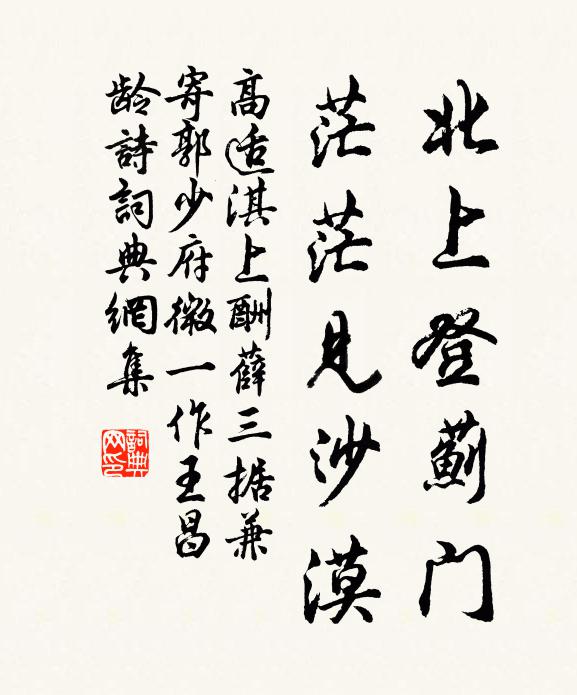 北上登薊门
茫茫見沙漠
高适淇上酬薛三据兼
寄郭少府微一作王昌
龄詩詞典網集
詞典
网印